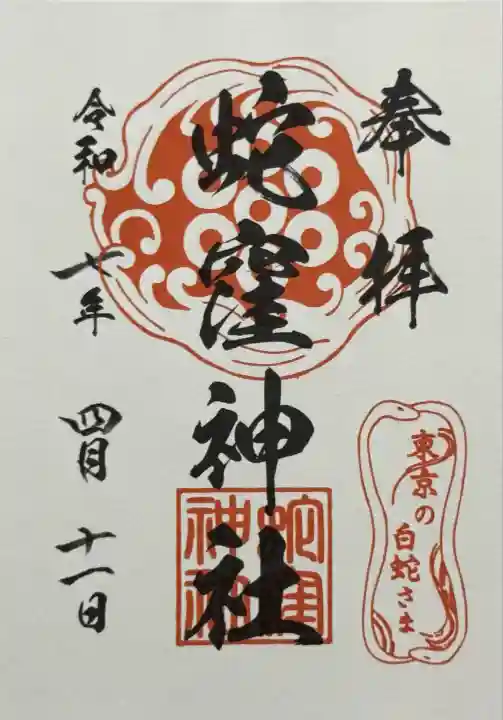 奉拝
東京の
白蛇さま
蛇窪神社
蛇窪
神社
令和七年
四月十一日